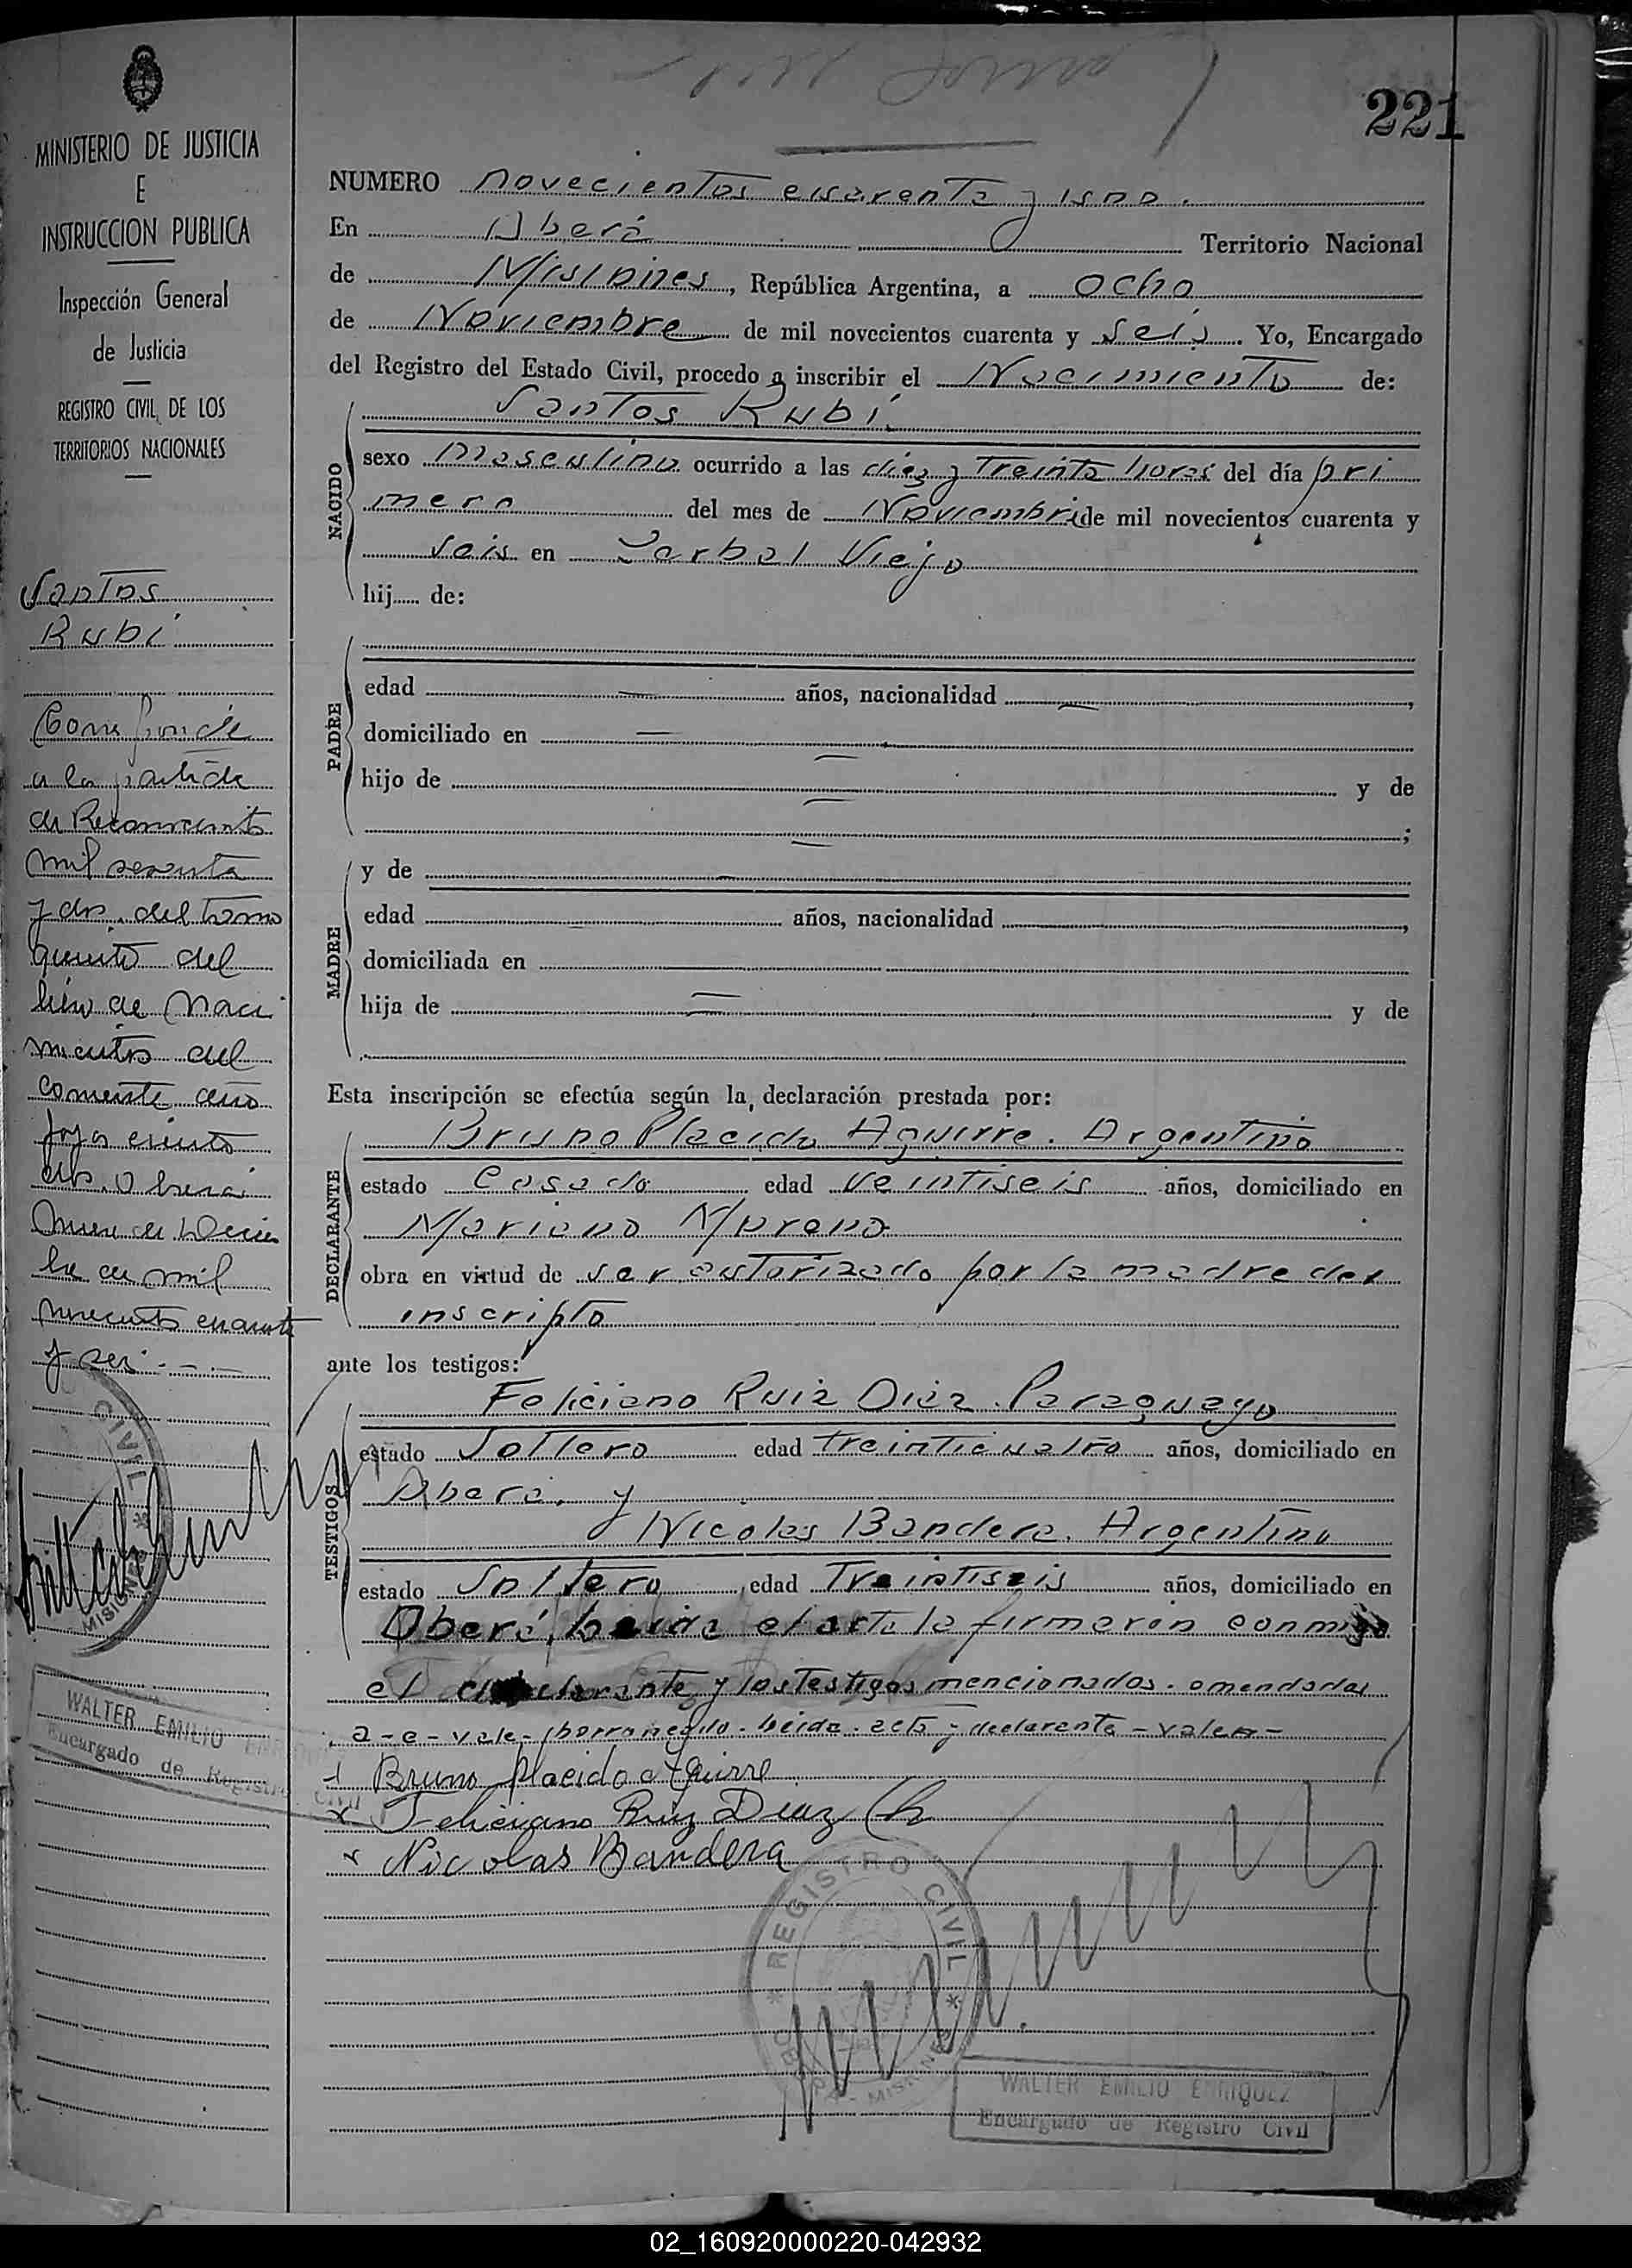 221
MINISTERIO DE JUSTICIA
E
INSTRUCCION PUBLICA
Inspección General
de Justicia
REGISTRO CIVIL DE LOS
TERRITORIOS NACIONALES
Santos
Rubí
Corresponde
a la partida
de Reconocimiento
mil sesenta
y dos del tomo
quinto del
libro de Naci
mientos del
corriente año
foja ciento
dos. Oberá
de Diciem
bre de mil
novecientos cuarenta
y seis
CIVIL *
MISIONES
WALTER EMILIO ENRIQUEZ
Encargado de Registro Civil
NUMERO novecientos cuarenta y uno.
En Oberá Territorio Nacional
de Misiones, República Argentina, a ocho
de Noviembre de mil novecientos cuarenta y seis. Yo, Encargado
del Registro del Estado Civil, procedo a inscribir el Nacimiento de:
Santos Rubí
NACIDO
sexo masculino ocurrido a las diez y treinta horas del día pri
mero del mes de Noviembre de mil novecientos cuarenta y
seis en Yarbal Viejo
hij de:
PADRE
edad — años, nacionalidad —,
domiciliado en —
hijo de — y de
— ;
MADRE
y de —
edad años, nacionalidad ,
domiciliada en
hija de — y de
Esta inscripción se efectúa según la declaración prestada por:
DECLARANTE
Bruno Placido Aguirre. Argentino
estado Casado edad veintiseis años, domiciliado en
Mariano Moreno
obra en virtud de ser autorizado por la madre del
inscripto
ante los testigos:
TESTIGOS
Feliciano Ruiz Diaz. Paraguayo
estado Soltero edad treinticuatro años, domiciliado en
Oberá. y
Nicolas Bandera. Argentino
estado Soltero, edad Treintiseis años, domiciliado en
Oberá, leida el acta la firmaron conmigo
el declarante y los testigos mencionados. omendadas
a-e-vale-borroneado-leida-acta y declarante-valen-
Bruno Placido Aguirre
x Feliciano Ruiz Diaz
x Nicolas Bandera
* REGISTRO CIVIL *
OBERA - MISIONES
WALTER EMILIO ENRIQUEZ
Encargado de Registro Civil
02_160920000220-042932